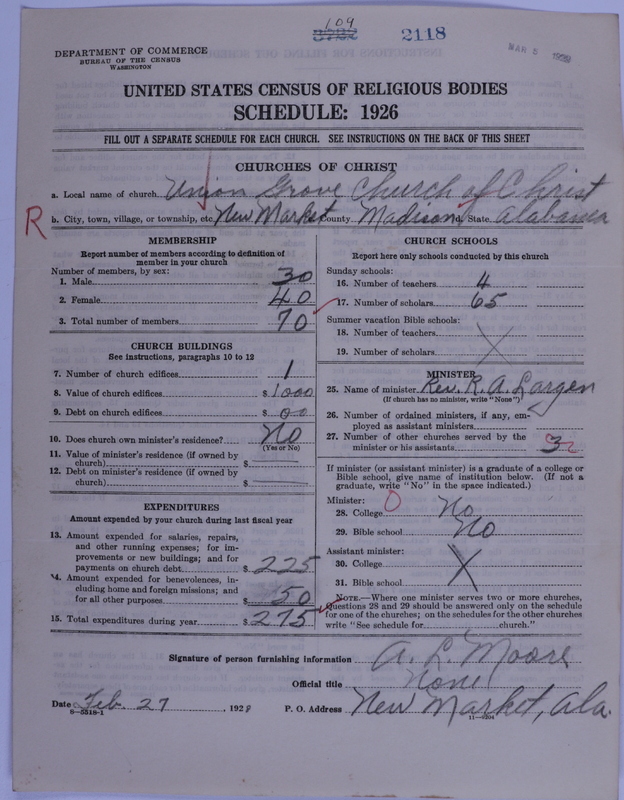 109
3732 2118
MAR 5 1928
DEPARTMENT OF COMMERCE
BUREAU OF THE CENSUS
WASHINGTON
UNITED STATES CENSUS OF RELIGIOUS BODIES
SCHEDULE: 1926
FILL OUT A SEPARATE SCHEDULE FOR EACH CHURCH. SEE INSTRUCTIONS ON THE BACK OF THIS SHEET
CHURCHES OF CHRIST
a. Local name of church Union Grove Church of Christ
R
b. City, town, village, or township, etc. New Market County Madison State Alabama
MEMBERSHIP
Report number of members according to definition of
member in your church
Number of members, by sex:
1. Male 30
2. Female 40
3. Total number of members 70
CHURCH BUILDINGS
See instructions, paragraphs 10 to 12
7. Number of church edifices 1
8. Value of church edifices $ 1000
9. Debt on church edifices $ 00
10. Does church own minister's residence? No
(Yes or No)
11. Value of minister's residence (if owned by
church) $
12. Debt on minister's residence (if owned by
church) $
EXPENDITURES
Amount expended by your church during last fiscal year
13. Amount expended for salaries, repairs,
and other running expenses; for im-
provements or new buildings; and for
payments on church debt $ 225
14. Amount expended for benevolences, in-
cluding home and foreign missions; and
for all other purposes $ 50
15. Total expenditures during year $ 275
CHURCH SCHOOLS
Report here only schools conducted by this church
Sunday schools:
16. Number of teachers 4
17. Number of scholars 65
Summer vacation Bible schools:
18. Number of teachers
19. Number of scholars X
MINISTER
25. Name of minister Rev. R. A. Largen
(If church has no minister, write "None")
26. Number of ordained ministers, if any, em-
ployed as assistant ministers
27. Number of other churches served by the
minister or his assistants 3 2
If minister (or assistant minister) is a graduate of a college or
Bible school, give name of institution below. (If not a
graduate, write "No" in the space indicated.)
Minister: O
28. College No
29. Bible school No
Assistant minister:
30. College X
31. Bible school
NOTE.—Where one minister serves two or more churches,
questions 28 and 29 should be answered only on the schedule
for one of the churches; on the schedules for the other churches
write "See schedule for church."
Signature of person furnishing information A. L. Moore
Official title None
Date Feb. 27, 1928 P. O. Address New Market, Ala.
8-5518-1